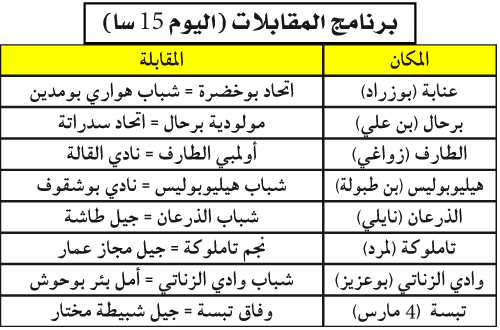 برنامج المقابلات (اليوم 15 سا)
المكان المقابلة
عنابة (بوزراد) اتحاد بوخضرة = شباب هواري بومدين
برحال (بن علي) مولودية برحال = اتحاد سدراتة
الطارف (زواغي) أولمبي الطارف = نادي القالة
هيليوبوليس (بن طبولة) شباب هيليوبوليس = نادي بوشقوف
الذرعان (نايلي) شباب الذرعان = جيل طاشة
تاملوكة (لمرد) نجم تاملوكة = جيل مجاز عمار
وادي الزناتي (بوعزيز) شباب وادي الزناتي = أمل بئر بوحوش
تبسة (4 مارس) وفاق تبسة = جيل شبيطة مختار